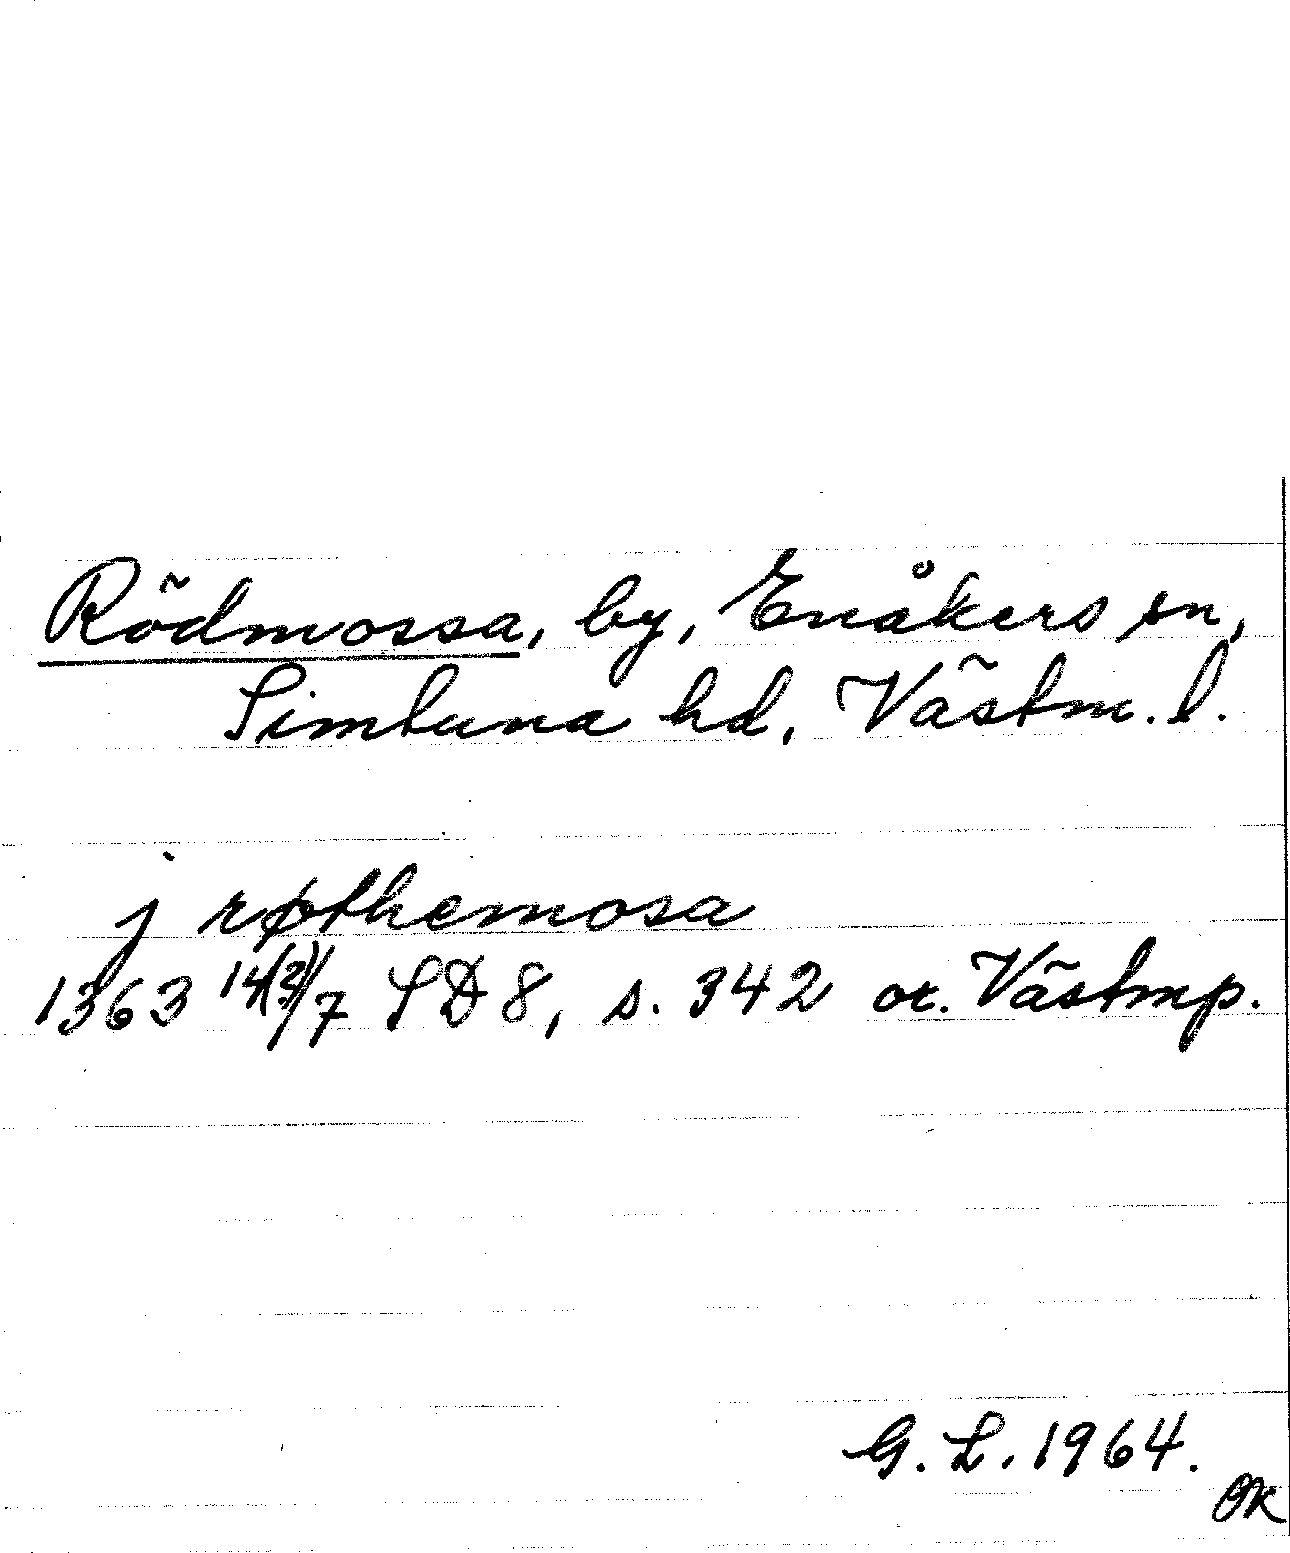 Rödmossa, by, Enåkers sn,
Simtuna hd, Västm. l.
j røthemosa
1363 14(?)/7 SD 8, s. 342 or. Västmp.
G. L. 1964.
OK